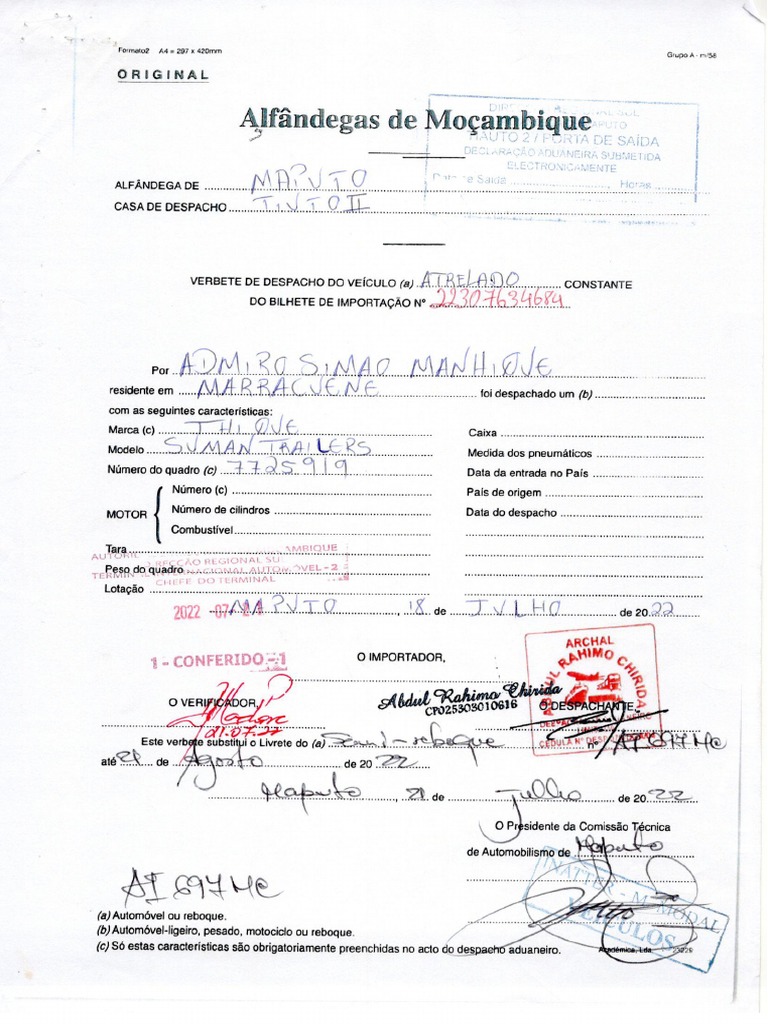 Formato2 A4 = 297 x 420mm
Grupo A - m/58
ORIGINAL
Alfândegas de Moçambique
PORTA DE SAÍDA
DECLARAÇÃO ADUANEIRA SUBMETIDA
ELECTRONICAMENTE
Data de Saída Horas
ALFÂNDEGA DE MAPUTO
CASA DE DESPACHO TIVTO II
VERBETE DE DESPACHO DO VEÍCULO (a) ATRELADO CONSTANTE
DO BILHETE DE IMPORTAÇÃO Nº 22307634684
Por ADMIRO SIMAO MANHIQUE
residente em MARRACUENE foi despachado um (b)
com as seguintes características:
Marca (c) THIQUE
Modelo SUMAN TRAILERS
Número do quadro (c) 7725919
Caixa
Medida dos pneumáticos
Data da entrada no País
País de origem
Data do despacho
MOTOR
Número (c)
Número de cilindros
Combustível
Tara
Peso do quadro
Lotação
REGIONAL
CHEFE DO TERMINAL
2022 -07-
MAPUTO 18 de JULHO de 2022
1 - CONFERIDO - 1
O IMPORTADOR,
O VERIFICADOR,
21.07.22
Abdul Rahimo Chirida
CP025303010616
ARCHAL
ABDUL RAHIMO CHIRIDA
O DESPACHANTE,
Este verbete substitui o Livrete do (a) Semi-reboque nº AI 697 MC
até 21 de Agosto de 2022
Maputo, 21 de Julho de 2022
O Presidente da Comissão Técnica
de Automobilismo de Maputo
AI 697 MC
INATTER - M. MODAL
VEICULOS
(a) Automóvel ou reboque.
(b) Automóvel-ligeiro, pesado, motociclo ou reboque.
(c) Só estas características são obrigatoriamente preenchidas no acto do despacho aduaneiro.
Académica, Lda.